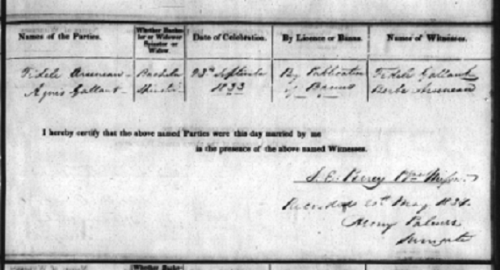 Names of the Parties.
Whether Bachelor or Widower Spinster or Widow.
Date of Celebration.
By Licence or Banns.
Names of Witnesses.
Fidele Arseneau
Bachelor
September
By Publication
Fidele Gallant
Agnes Gallant
Spinster
1833
of Banns
Arseneau
I hereby certify that the above named Parties were this day married by me
in the presence of the above named Witnesses.
May
Henry Palmer
Surrogate